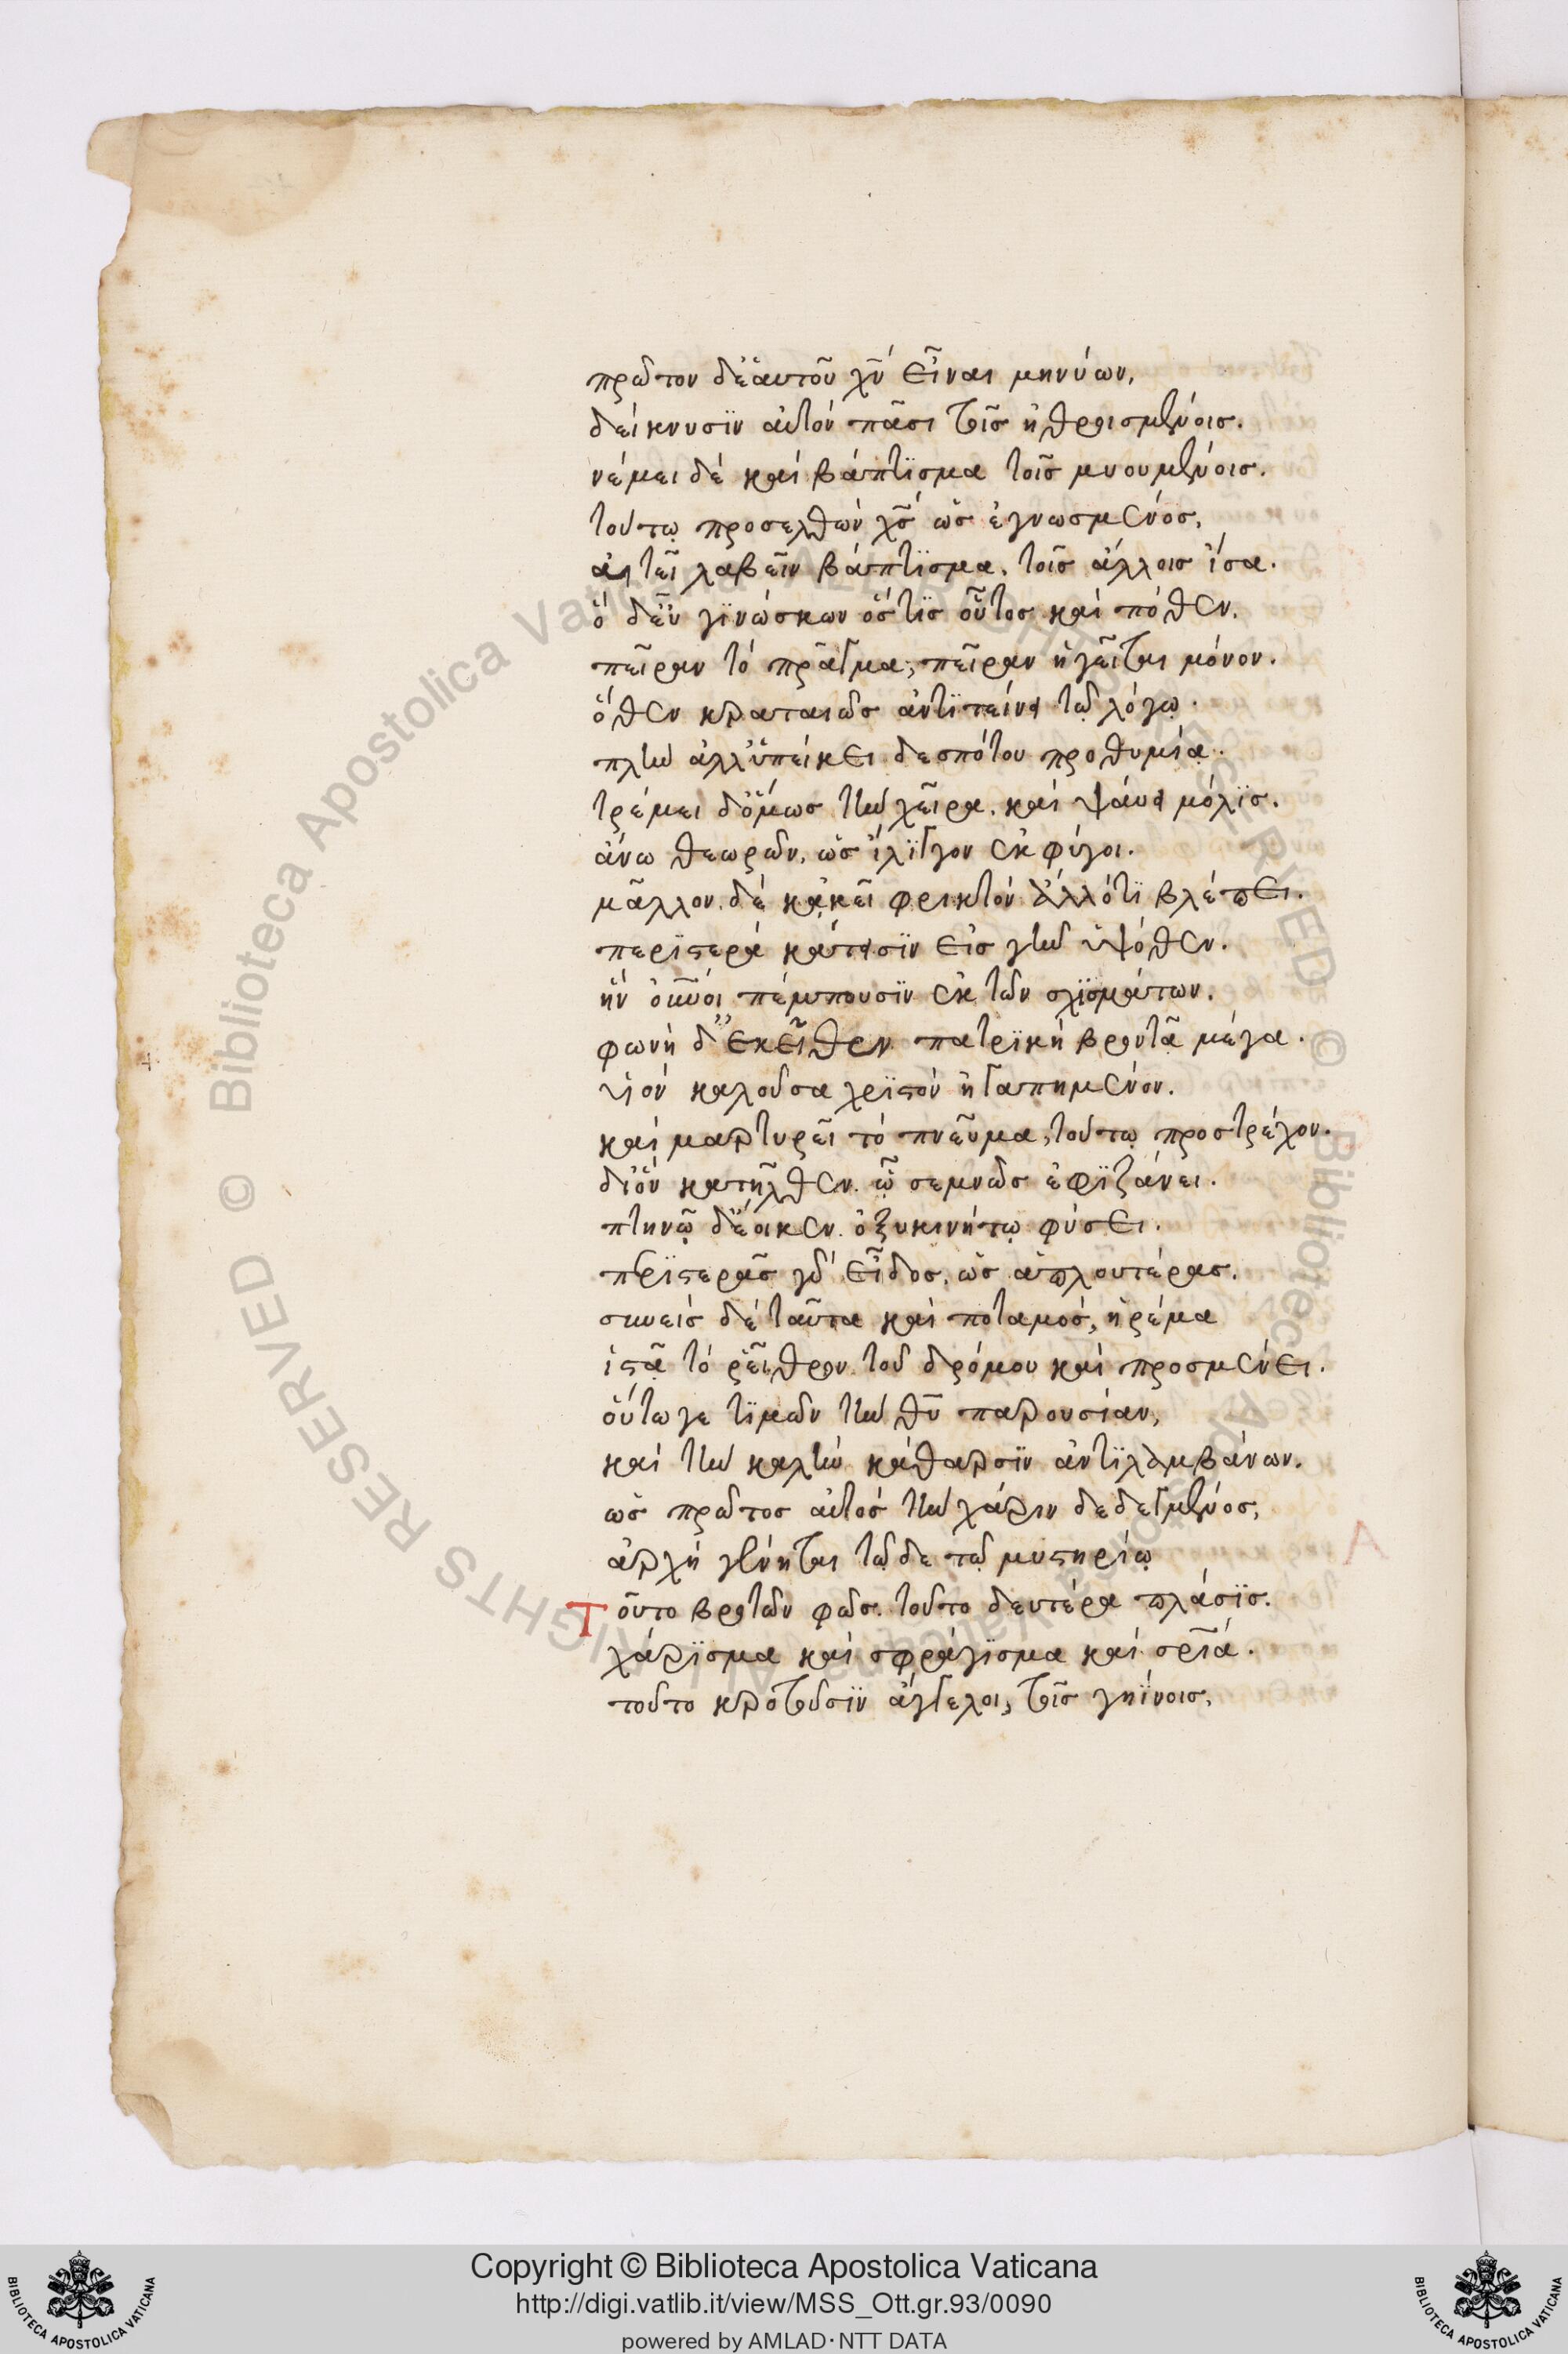 πρῶτον δ' ἑαυτοῦ χν̄ εἶναι μηνύων,
δείκνυσιν αὐτὸν πᾶσι τοῖς ἠθροισμένοις.
νέμει δὲ καὶ βάπτϊσμα τοῖς μυουμένοις.
τούτῳ προσελθὼν χς̄ ὡς ἐγνωσμένος,
αἰτεῖ λαβεῖν βάπτϊσμα. τοῖς ἄλλοις ἴσα.
ὁ δ' εὖ γϊνώσκων ὅστϊς οὗτος καὶ πόθεν.
πεῖραν τὸ πρᾶγμα, πεῖραν ἡγεῖται μόνον.
ὅθεν κραταιῶς ἀντϊτείνει τῷ λόγῳ.
πλὴν ἀλλ' ὑπείκει δεσπότου προθυμίᾳ.
τρέμει δ' ὅμως τὴν χεῖρα. καὶ ψαύει μόλϊς.
ἄνω θεωρῶν, ὡς ἴλϊγγον ἐκφύγοι.
μᾶλλον δὲ κἀκεῖ φρικτὸν ἄλλό τϊ βλέπει.
περϊστερὰ κάτεισϊν εἰς γῆν ὑψόθεν.
ἣν οὐνοὶ πέμπουσϊν ἐκ τῶν σχϊσμάτων.
φωνὴ δ' ἐκεῖθεν πατρϊκὴ βροντᾷ μέγα.
υἱὸν καλοῦσα χρϊστὸν ἠγαπημένον.
καὶ μαρτυρεῖ τὸ πνεῦμα, τούτῳ προστρέχον.
δι' ὃν κατῆλθεν. ᾧ σεμνῶς ἐφϊζάνει.
πτηνῷ δ' ἔοικεν ὀξυκινήτῳ φύσει.
πϵρϊστερᾶς γὰρ εἶδος, ὡς ἁπλουστέρας.
συνεὶς δὲ ταῦτα καὶ ποταμός, ἠρέμα
ἱστᾷ τὸ ῥεῖθρον τοῦ δρόμου καὶ προσμένει.
οὕτω γε τϊμῶν τὴν θῡ παρουσίαν,
καὶ τὴν καλὴν κάθαρσϊν ἀντϊλαμβάνων.
ὡς πρῶτος αὐτὸς τὴν χάριν δεδεγμένος,
ἀρχὴ γένηται τῷδε τῷ μυστηρίῳ
Τοῦτο βροτῶν φῶς. τοῦτο δευτέρα πλάσϊς.
χάρϊσμα καὶ σφράγϊσμα καὶ σρ̄ιά.
τοῦτο κροτοῦσϊν ἄγγελοι, τοῖς γηΐνοις,
Copyright © Biblioteca Apostolica Vaticana
http://digi.vatlib.it/view/MSS_Ott.gr.93/0090
powered by AMLAD·NTT DATA